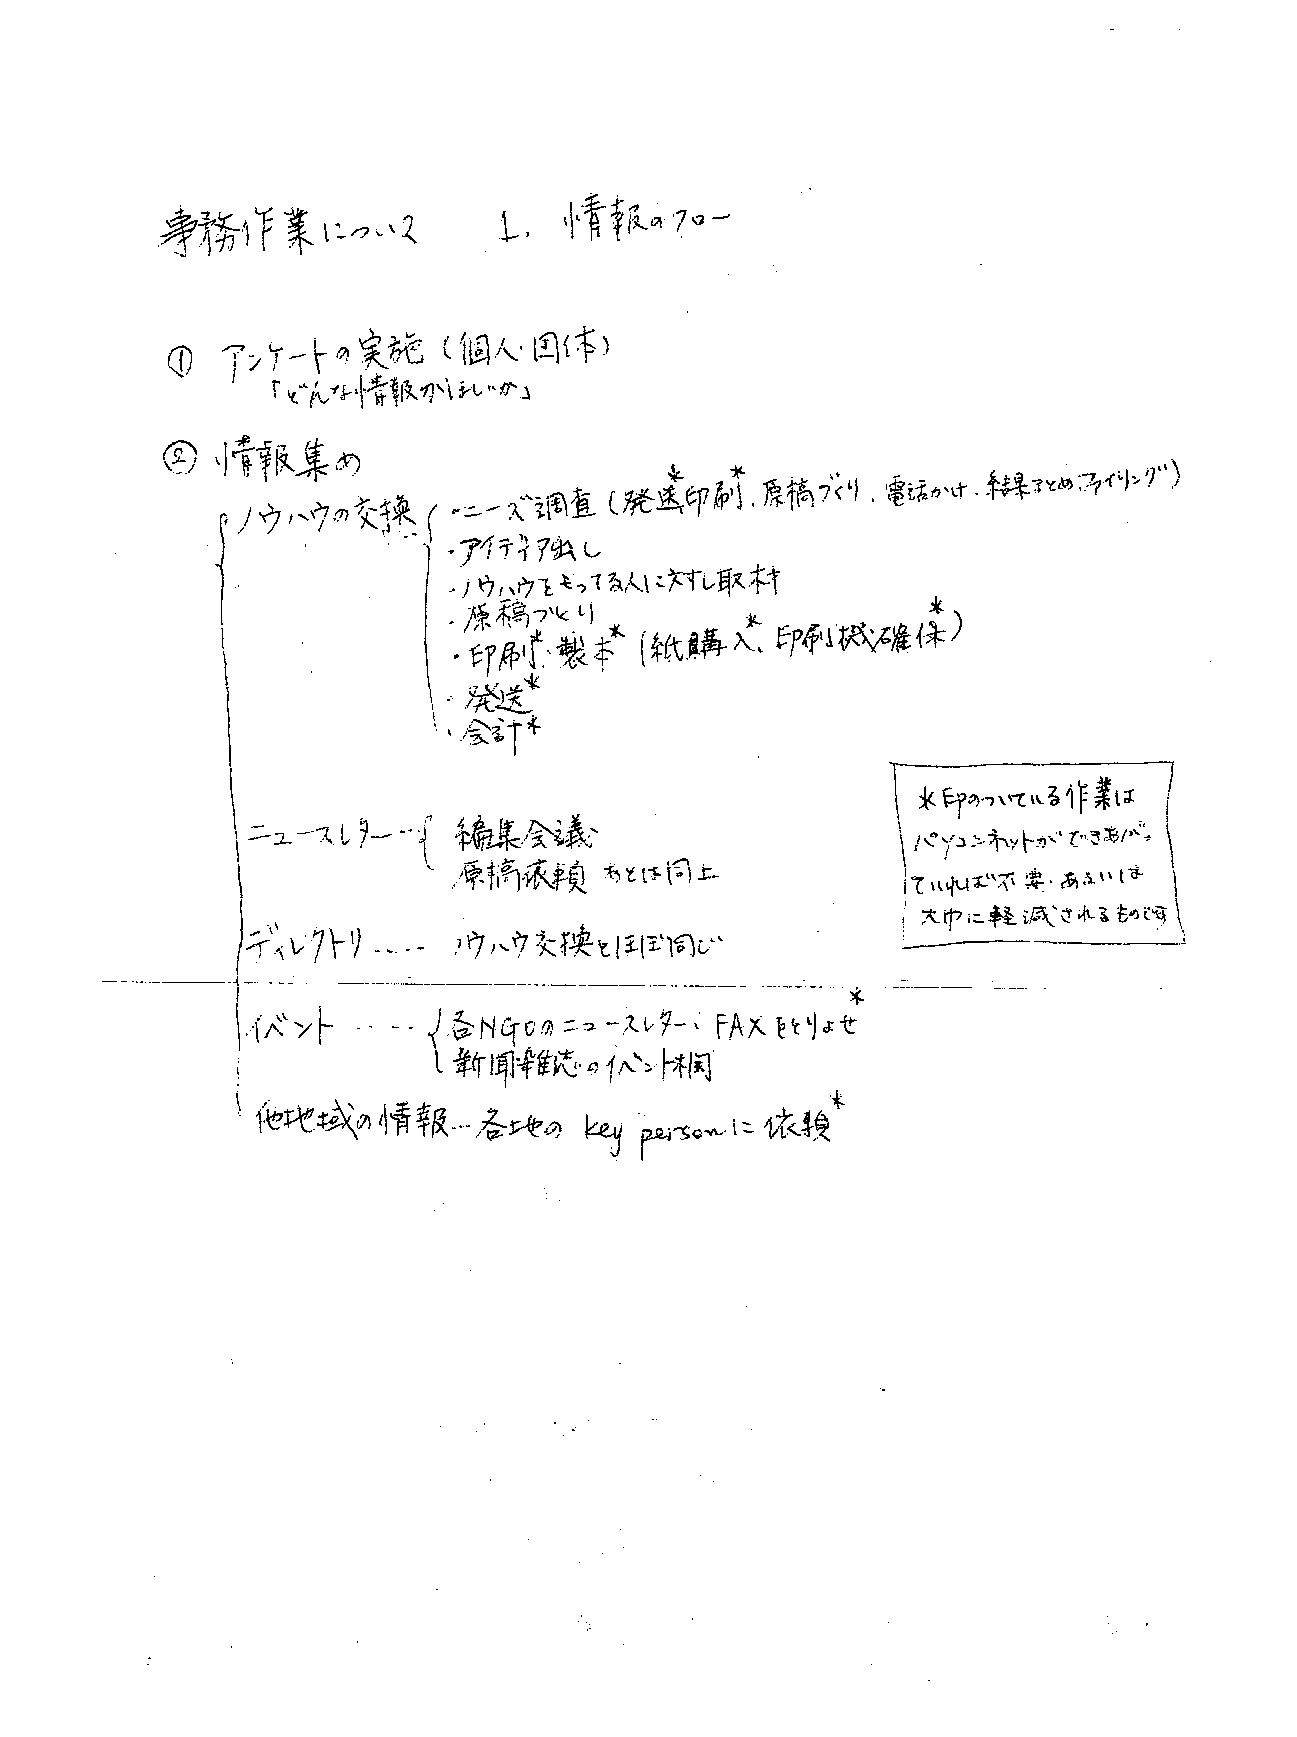 事務作業について　1. 情報のフロー
① アンケートの実施（個人・団体）
「どんな情報がほしいか」
② 情報集め
ノウハウの交換…
・ニーズ調査（発送*印刷*、原稿づくり、電話かけ、結果まとめ、ファイリング）
・アイディア出し
・ノウハウをもってる人に対し取材
・原稿づくり
・印刷*・製本*（紙購入*、印刷機確保*）
・発送*
・会計*
ニュースレター… 編集会議
原稿依頼 あとは同上
＊印のついている作業は
パソコンネットができあがっ
ていれば不要・あるいは
大巾に軽減されるものです
ディレクトリ‥‥ ノウハウ交換とほぼ同じ
イベント‥‥ 各NGOのニュースレター、FAXをとりよせ*
新聞雑誌のイベント欄
他地域の情報…各地の key personに依頼*